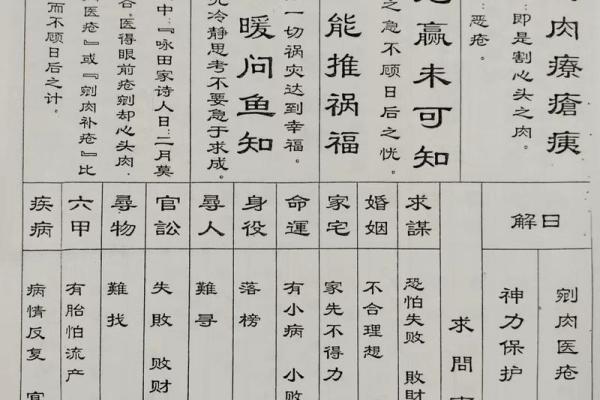 肉療瘡痍
即是割心头之肉。
恶疮。
赢未可知
之急不顾日后之忧。
能推祸福
一切祸灾达到幸福。
暖问鱼知
冷静思考不要急于求成。
中：『咏田家诗人日：二月莫
谷，医得眼前疮剜却心头肉。
医疮』或『剜肉补疮』比
而不顾日后之计。
日解
剜肉医疮
神力保护
求問
求謀
恐怕失败 敗財
婚姻
不合理想
家宅
家先不得力
命運
有小病 小败
身役
落榜
尋人
難寻
官訟
失敗 败财
尋物
難找
六甲
有胎怕流产
疾病
病情反复